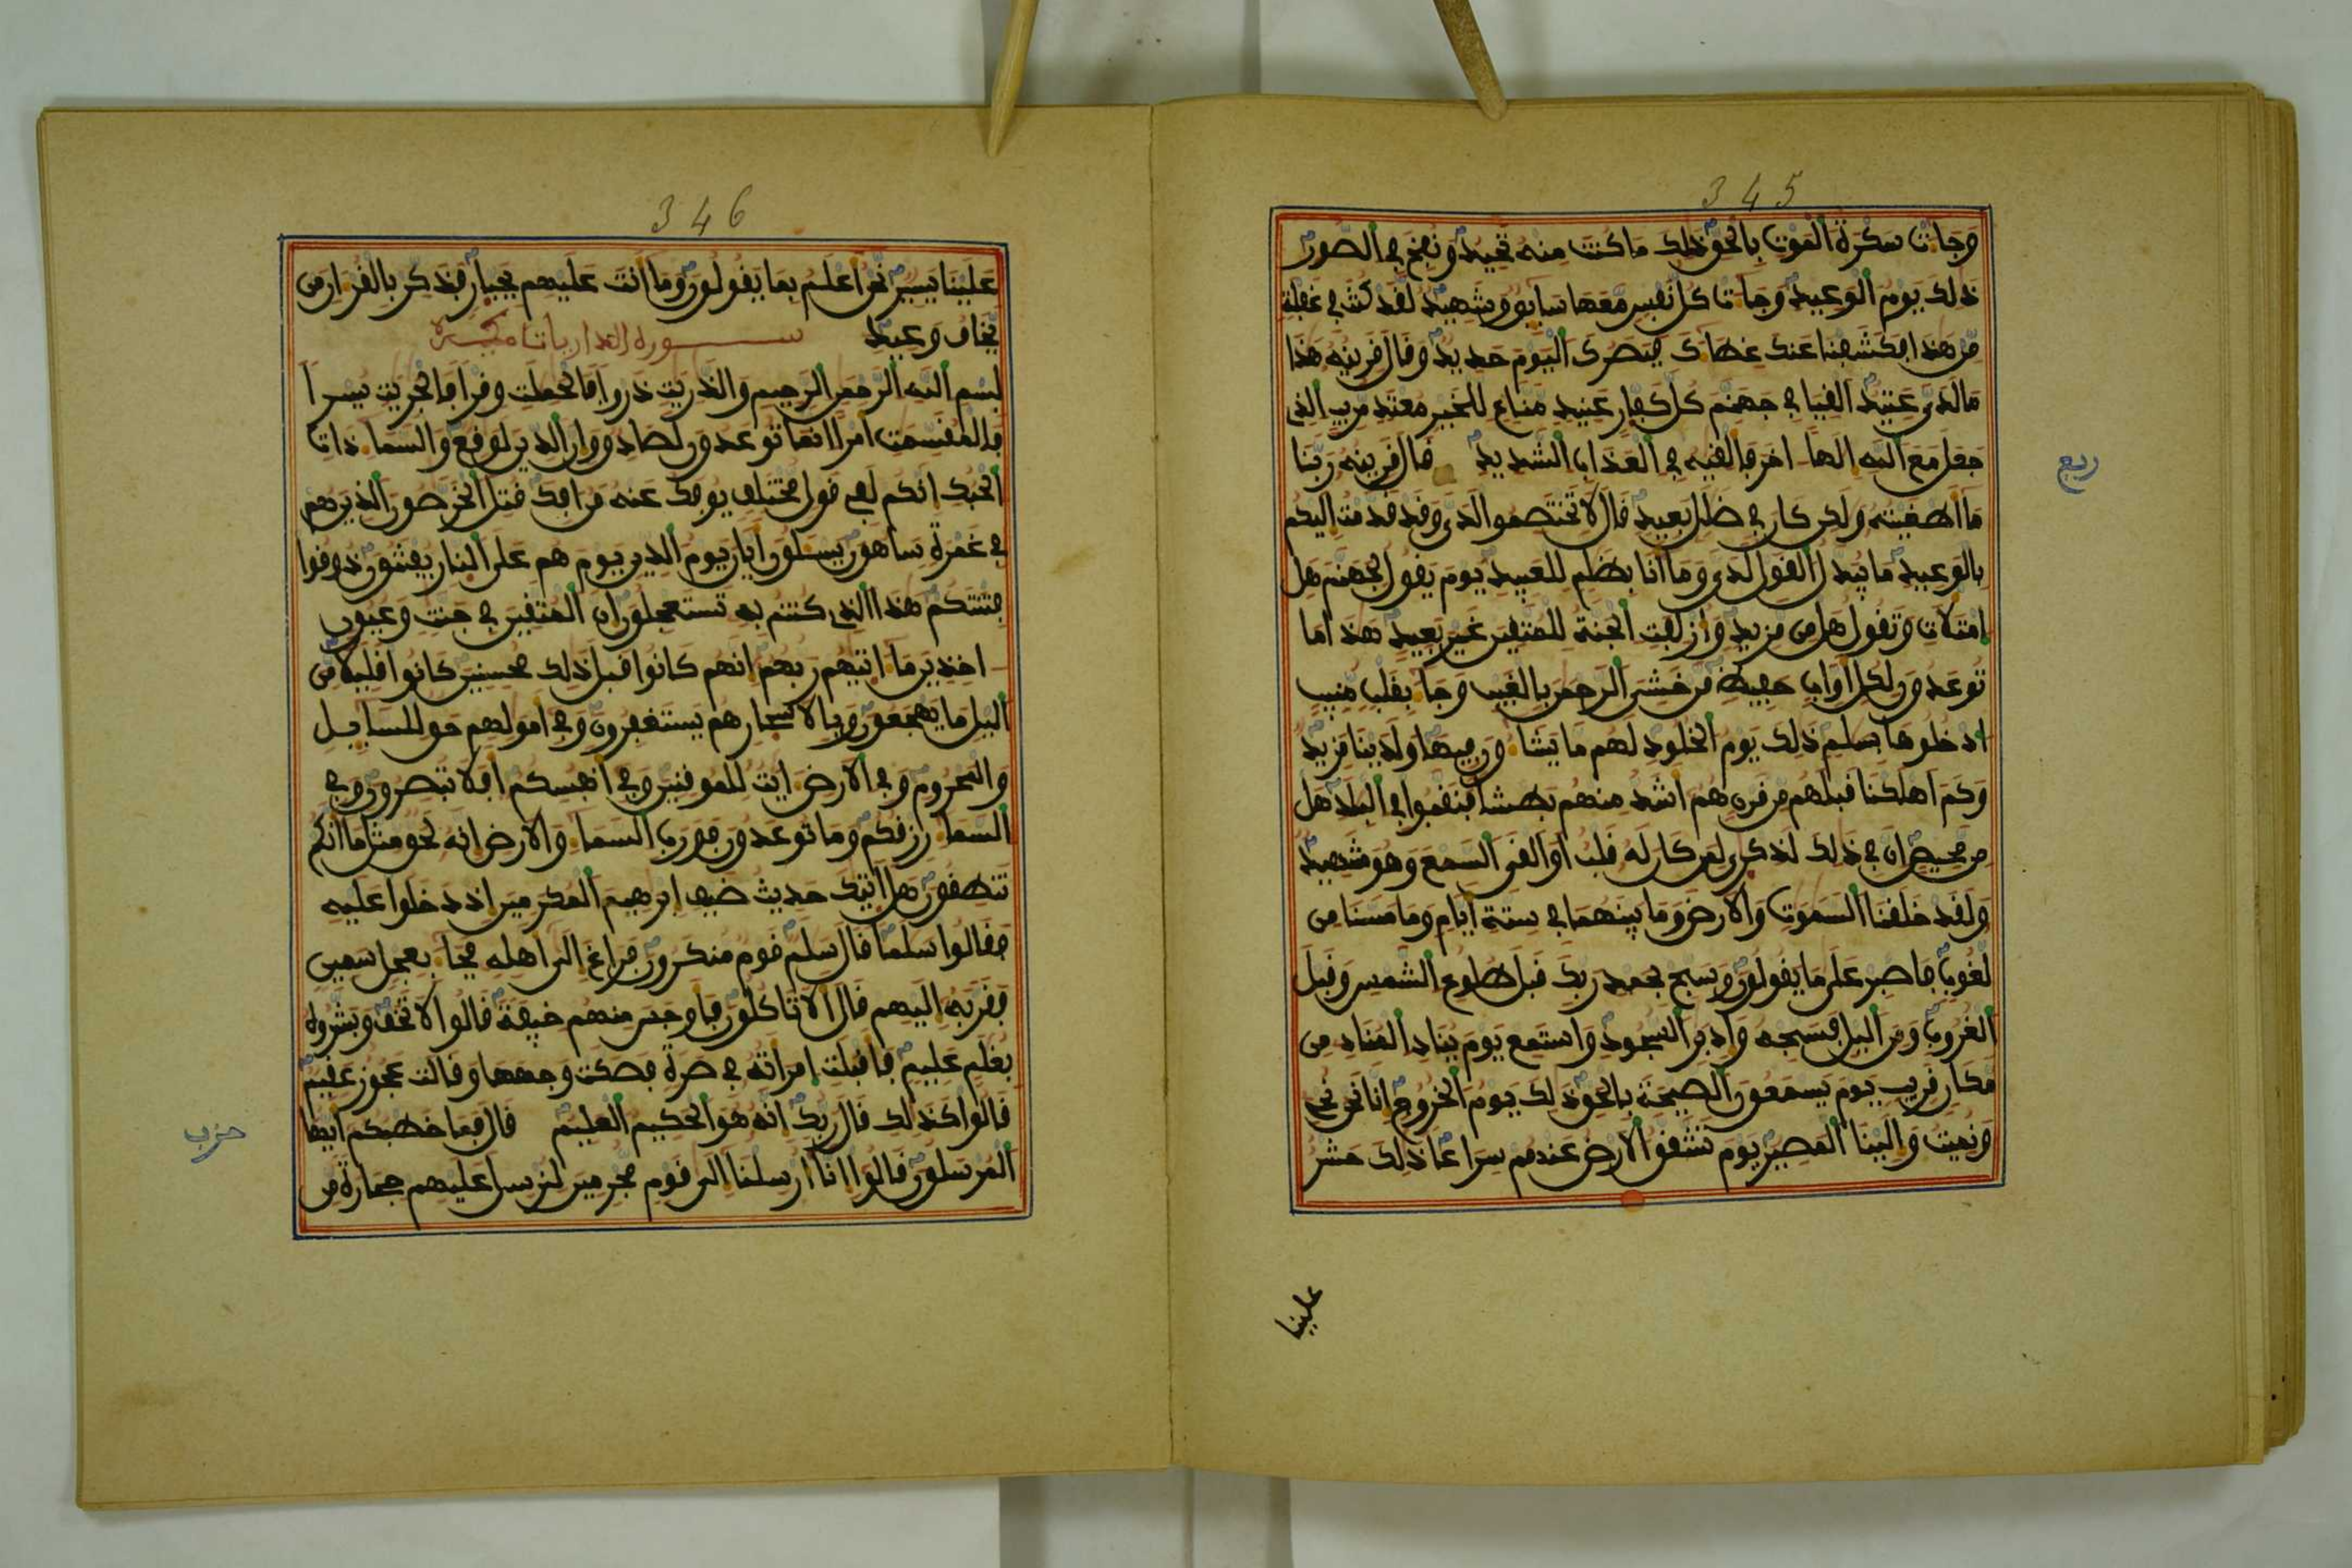 345
وجات سكرة الموت بالحق ذلك ما كنت منه تحيد ونفخ في الصور
ذلك يوم الوعيد وجات كل نفس معها سايق وشهيد لقد كنت في غفلة
من هذا فكشفنا عنك غطاك فبصرك اليوم حديد وقال قرينه هذا
ما لدى عتيد القيا في جهنم كل كفار عنيد مناع للخير معتد مريب الذى
جعل مع الله الها اخر فالقيه في العذاب الشديد قال قرينه ربنا
ما اطغيته ولكن كان في ضلل بعيد قال لا تختصموا لدى وقد قدمت اليكم
بالوعيد ما يبدل القول لدى وما انا بظلم للعبيد يوم يقول لجهنم هل
امتلات وتقول هل من مزيد وازلفت الجنة للمتقين غير بعيد هذا ما
توعدون لكل اواب حفيظ من خشى الرحمن بالغيب وجا بقلب منيب
ادخلوها بسلم ذلك يوم الخلود لهم ما يشاون فيها ولدينا مزيد
وكم اهلكنا قبلهم من قرن هم اشد منهم بطشا فنقبوا في البلد هل
من محيص ان في ذلك لذكرى لمن كان له قلب او القى السمع وهو شهيد
ولقد خلقنا السموت والارض وما بينهما في ستة ايام وما مسنا من
لغوب فاصبر على ما يقولون وسبح بحمد ربك قبل طلوع الشمس وقبل
الغروب ومن اليل فسبحه وادبر السجود واستمع يوم يناد المناد من
مكان قريب يوم يسمعون الصيحة بالحق ذلك يوم الخروج انا نحن نحي
ونميت والينا المصير يوم تشقق الارض عنهم سراعا ذلك حشر
ربع
علينا
346
علينا يسير نحن اعلم بما يقولون وما انت عليهم بجبار فذكر بالقران من
يخاف وعيد سورة الذاريات مكية
بسم الله الرحمن الرحيم والذريت ذروا فالحملت وقرا فالجريت يسرا
فالمقسمت امرا انما توعدون لصادق وان الدين لوقع والسما ذات
الحبك انكم لفي قول مختلف يوفك عنه من افك قتل الخرصون الذين هم
في غمرة ساهون يسلون ايان يوم الدين يوم هم على النار يفتنون ذوقوا
فتنتكم هذا الذى كنتم به تستعجلون ان المتقين في جنت وعيون
اخذين ما اتيهم ربهم انهم كانوا قبل ذلك محسنين كانوا قليلا من
اليل ما يهجعون وبالاسحار هم يستغفرون وفي امولهم حق للسايل
والمحروم وفي الارض ايت للموقنين وفي انفسكم افلا تبصرون وفي
السما رزقكم وما توعدون فورب السما والارض انه لحق مثل ما انكم
تنطقون هل اتيك حديث ضيف ابرهيم المكرمين اذ دخلوا عليه
فقالوا سلما قال سلم قوم منكرون فراغ الى اهله فجا بعجل سمين
فقربه اليهم قال الا تاكلون فاوجس منهم خيفة قالوا لا تخف وبشروه
بغلم عليم فاقبلت امراته في صرة فصكت وجهها وقالت عجوز عقيم
قالوا كذلك قال ربك انه هو الحكيم العليم قال فما خطبكم ايها
المرسلون قالوا انا ارسلنا الى قوم مجرمين لنرسل عليهم حجارة من
حزب